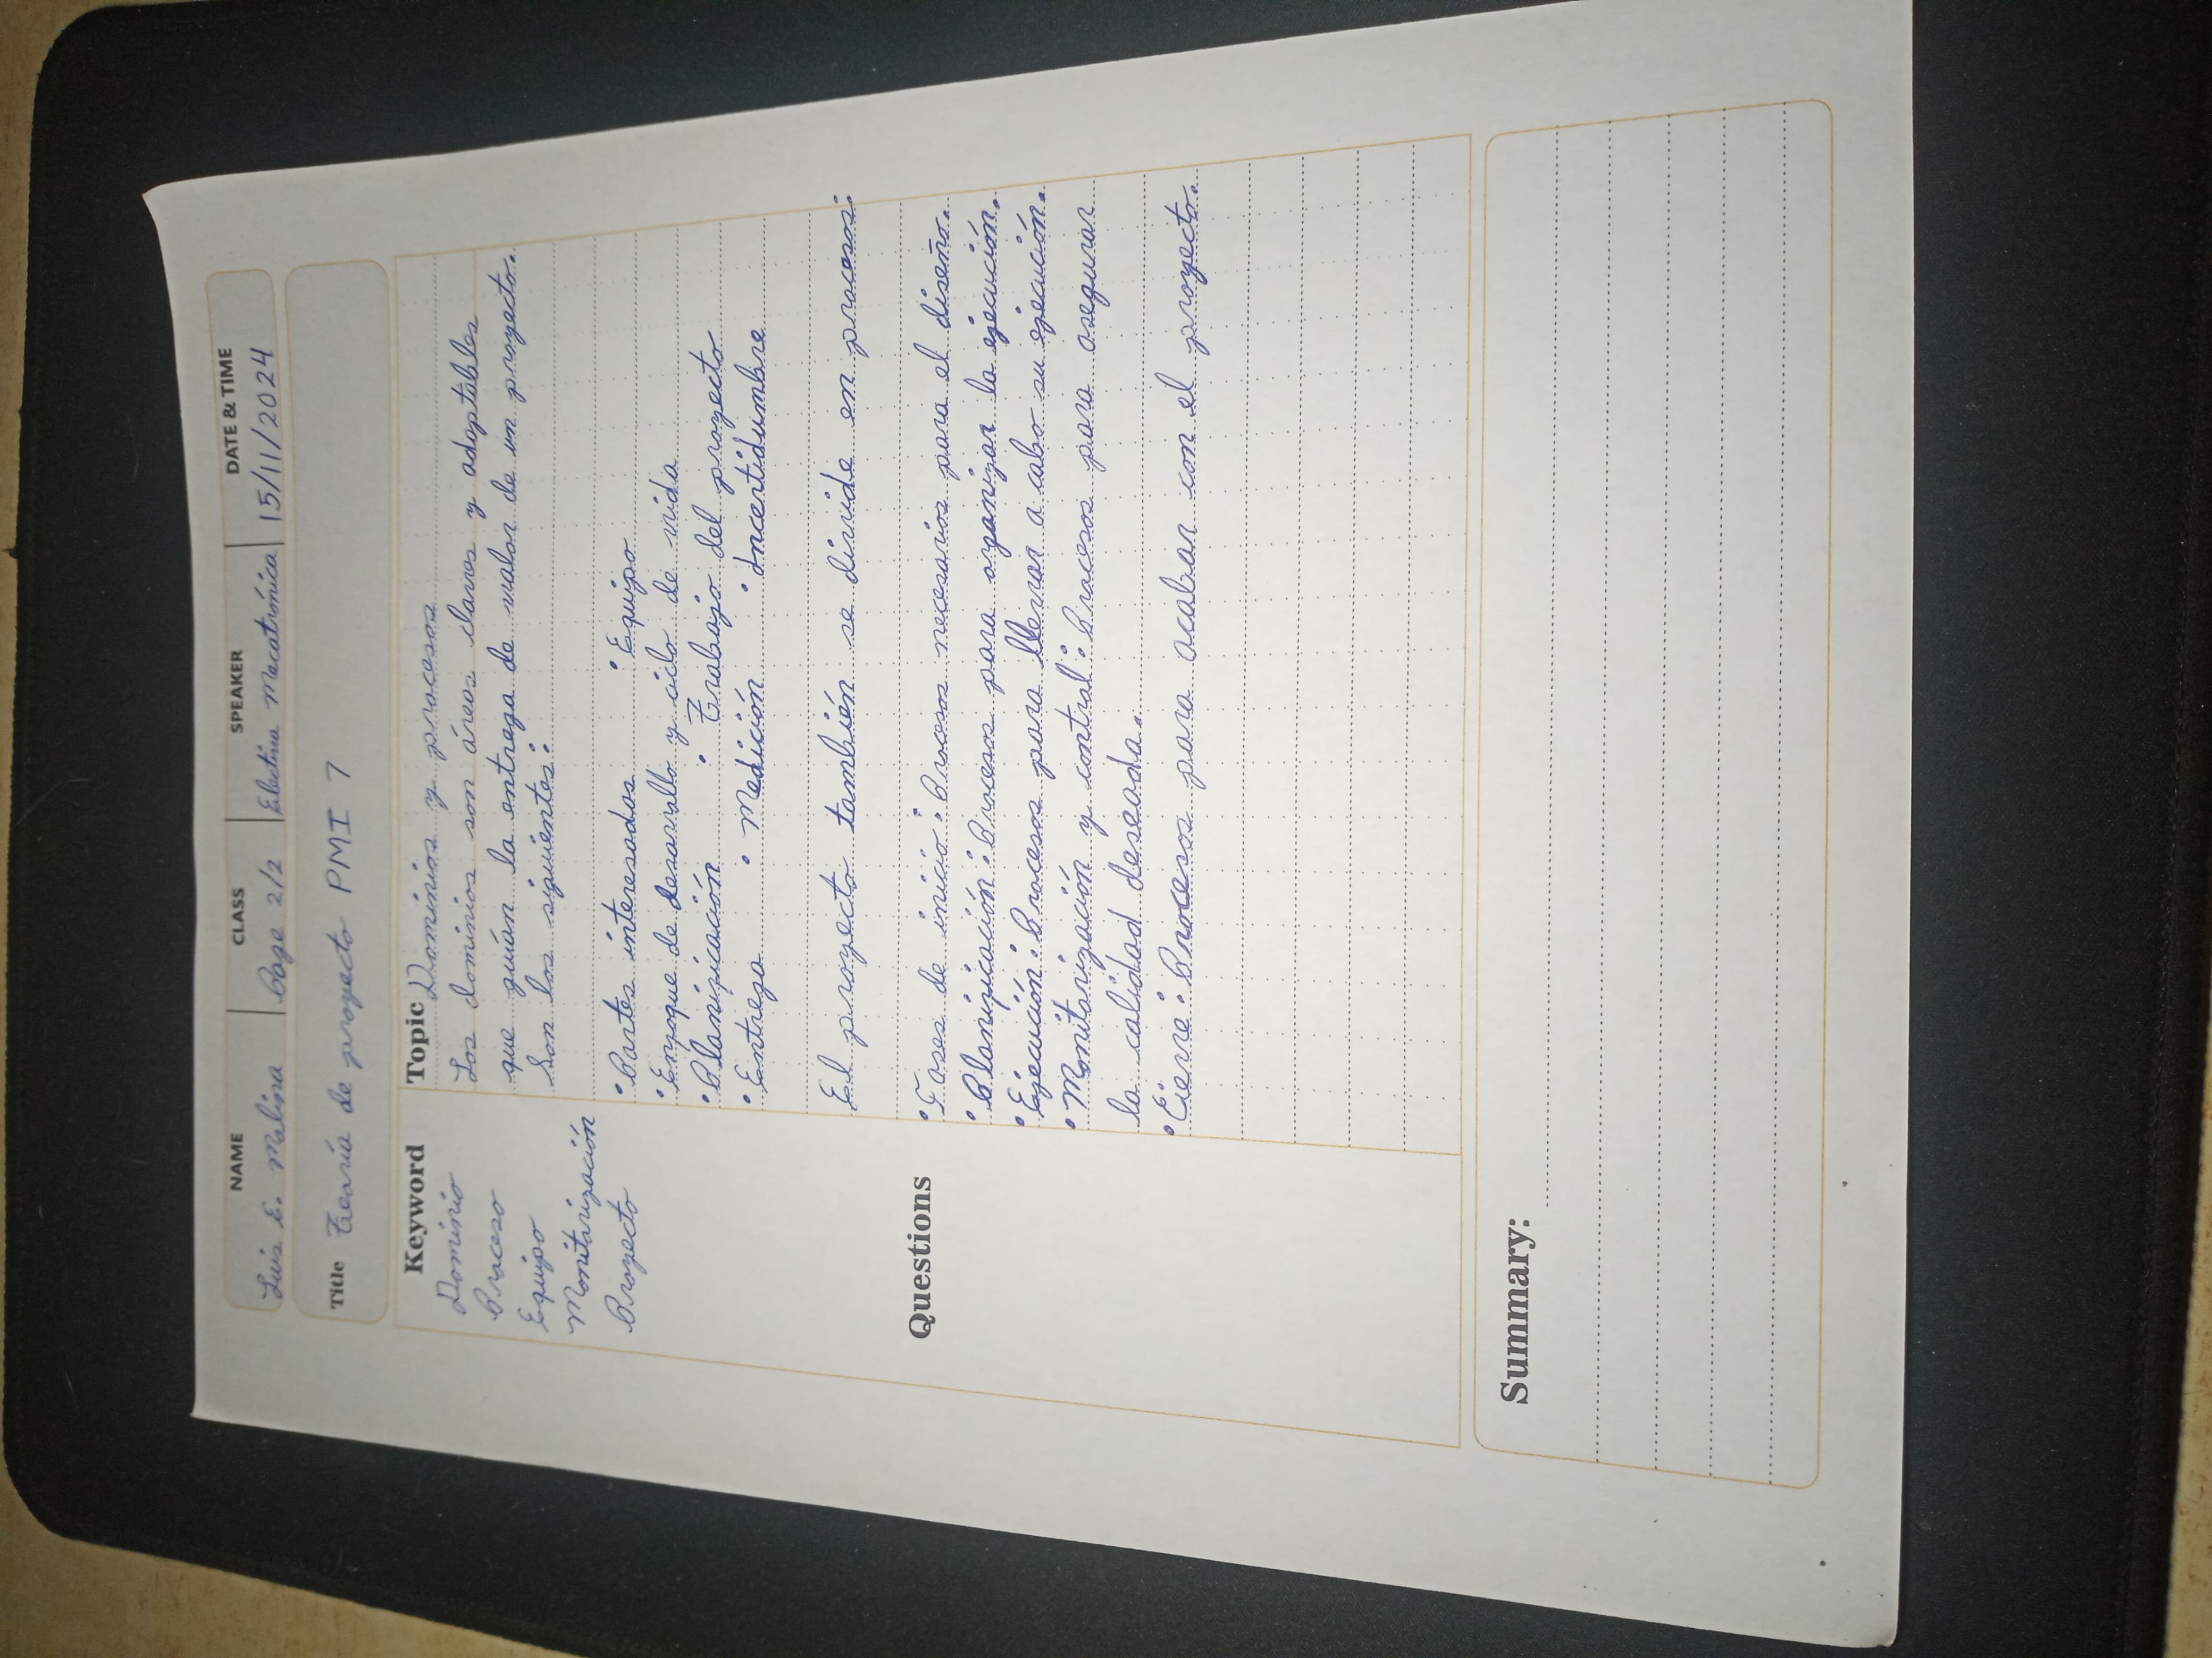 NAME CLASS SPEAKER DATE & TIME
Luis E. Molina Page 2/2 Electiva Mecatrónica 15/11/2024
Title Teoría de proyecto PMI 7
Keyword
Dominio
Proceso
Equipo
Monitorización
Proyecto
Questions
Topic Dominios y procesos
Los dominios son áreas claves y adaptables
que guían la entrega de valor de un proyecto.
Son los siguientes:
• Partes interesadas • Equipo
• Enfoque de desarrollo y ciclo de vida
• Planificación • Trabajo del proyecto
• Entrega • Medición • Incertidumbre
El proyecto también se divide en procesos:
• Fases de inicio: Procesos necesarios para el diseño.
• Planificación: Procesos para organizar la ejecución.
• Ejecución: Procesos para llevar a cabo su ejecución.
• Monitorización y control: Procesos para asegurar
la calidad deseada.
• Cierre: Procesos para acabar con el proyecto.
Summary: